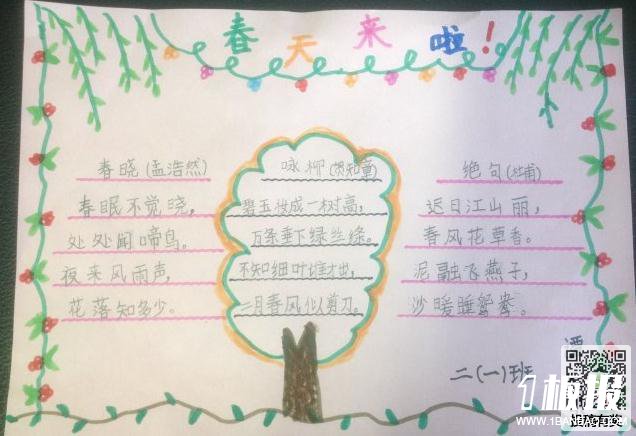 春天来啦!
春晓(孟浩然)
春眠不觉晓,
处处闻啼鸟。
夜来风雨声,
花落知多少。
咏柳(贺知章)
碧玉妆成一树高,
万条垂下绿丝绦。
不知细叶谁裁出,
二月春风似剪刀。
绝句(杜甫)
迟日江山丽,
春风花草香。
泥融飞燕子,
沙暖睡鸳鸯。
二(一)班
谭
1板报
WWW.1BANBAO.COM